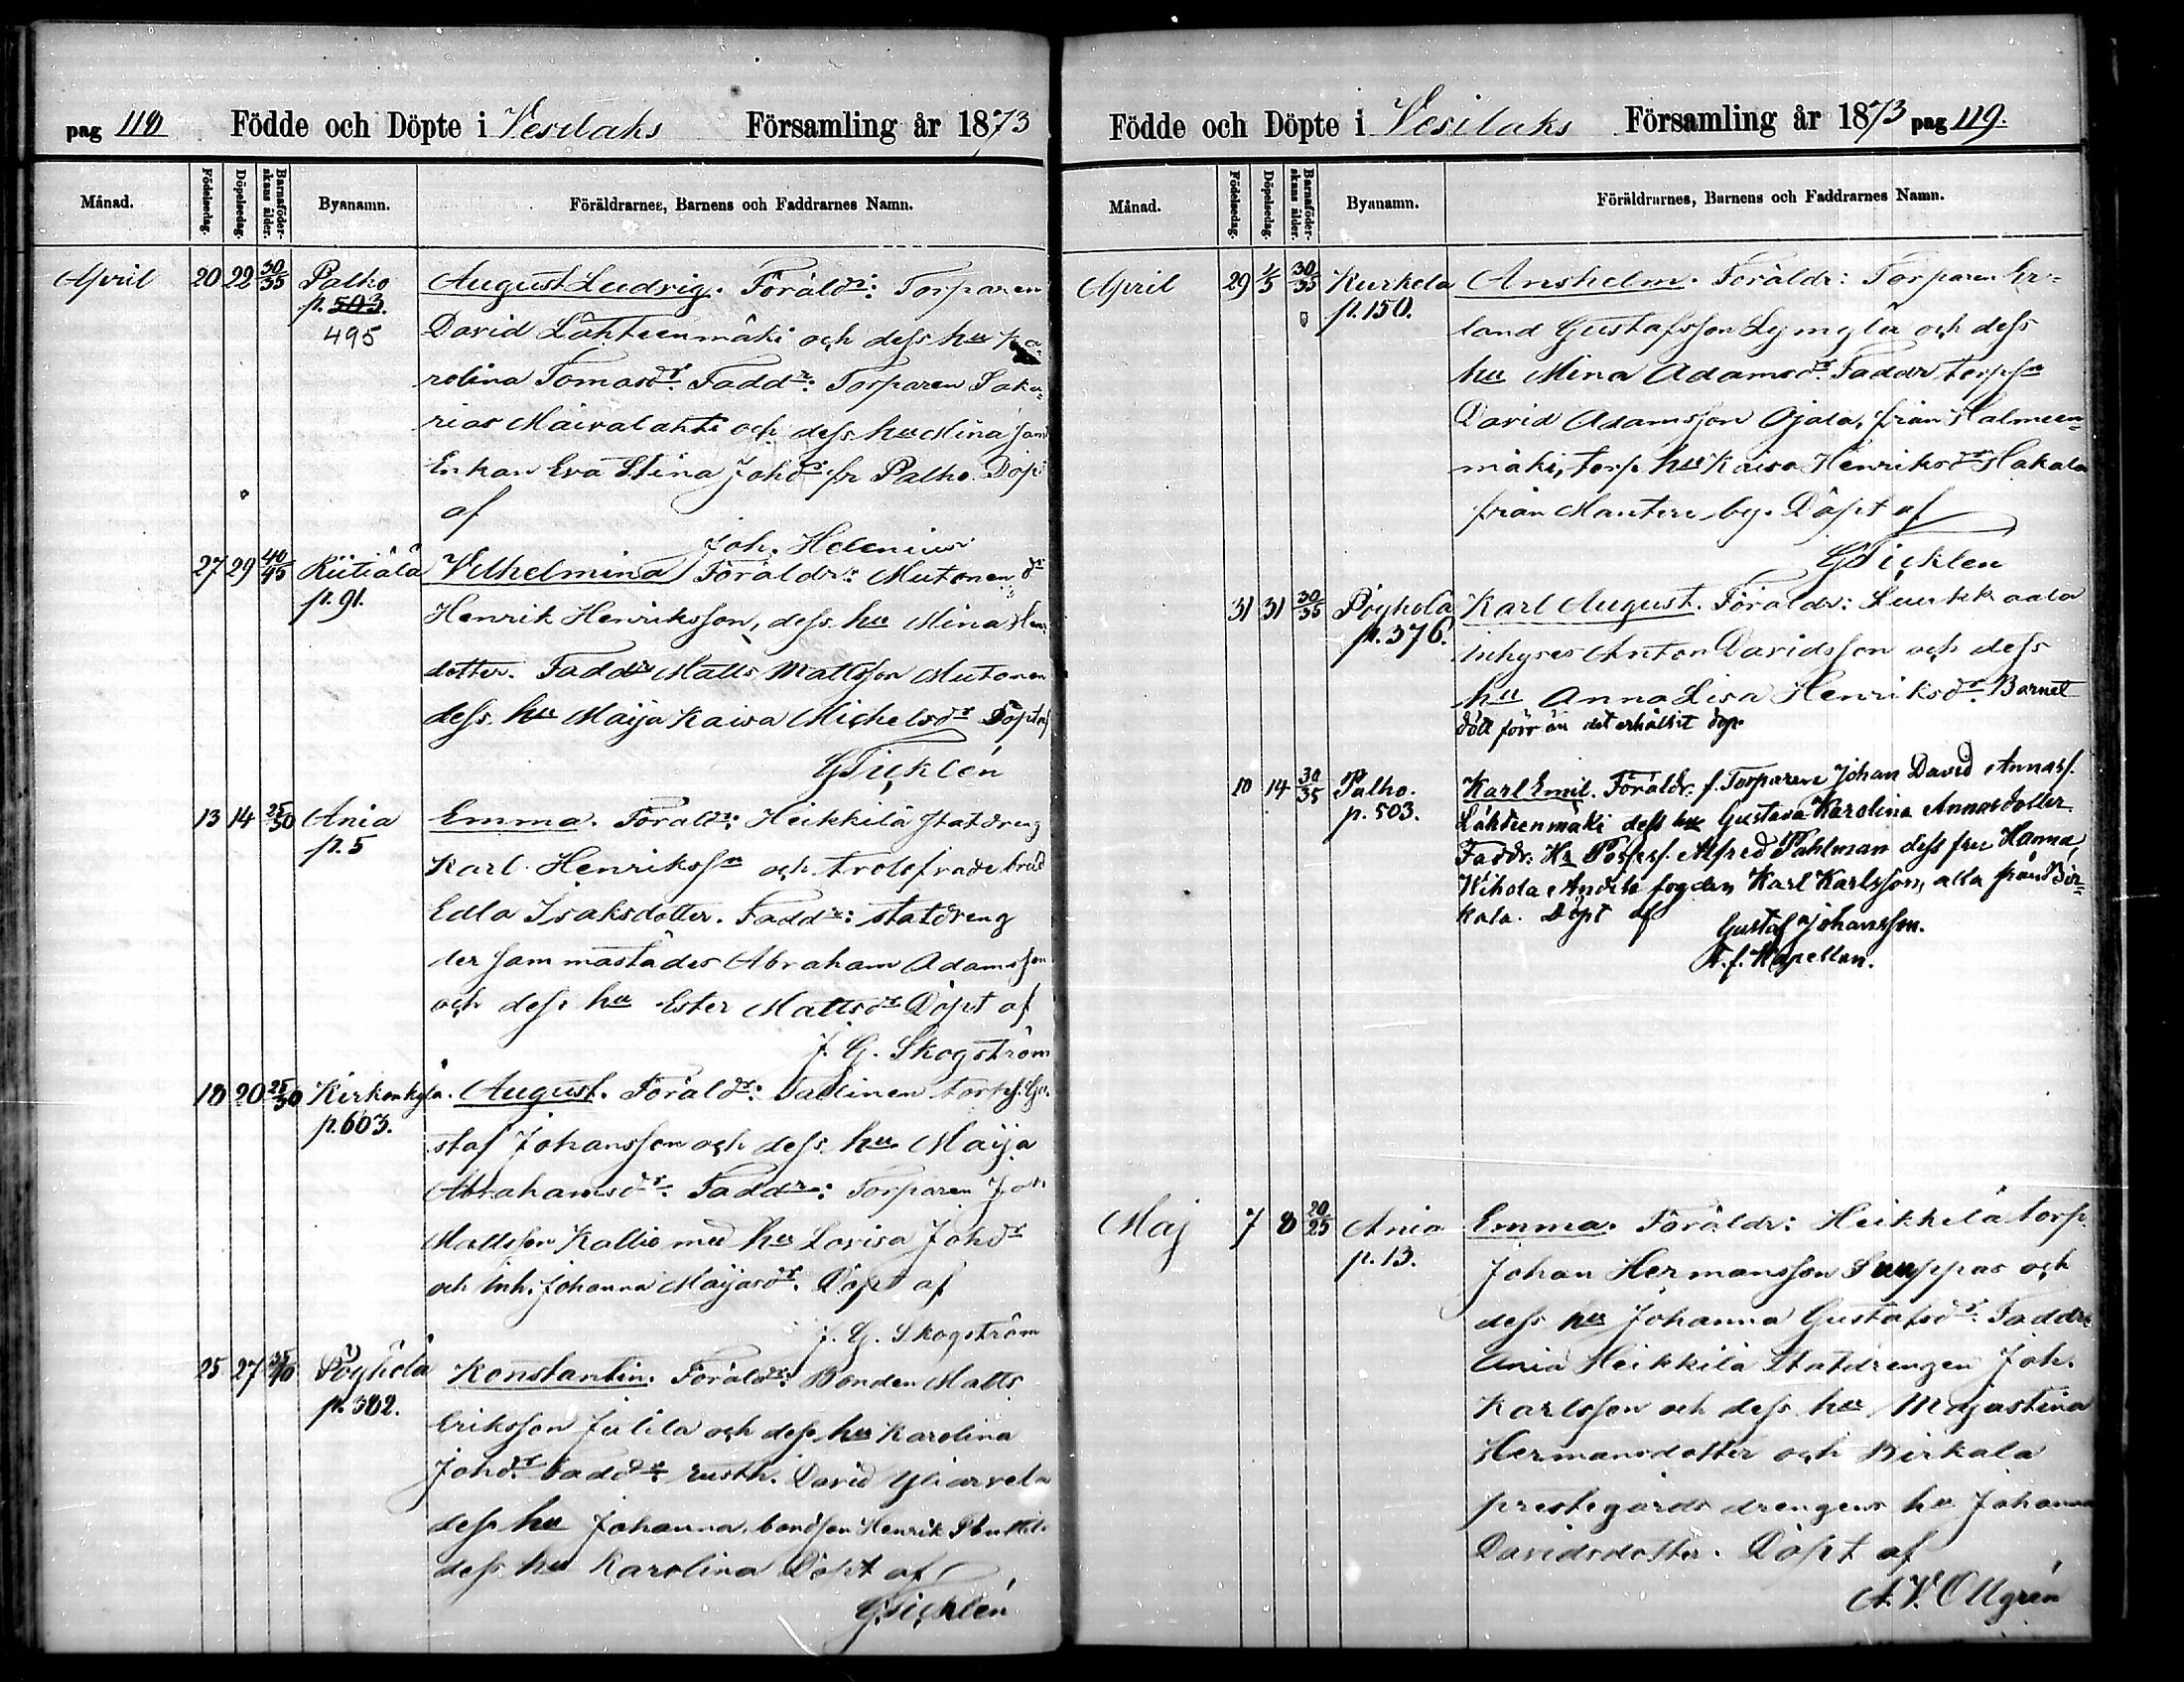 pag 118 Födde och Döpte i Vesilaks Församling år 1873
Månad. Födelsedag. Döpelsedag. Barnaföderskans ålder. Byanamn. Föräldrarnes, Barnens och Faddrarnes Namn.
April 20 22 30/35 Palho August Ludvig. Föräldr: Torparen
p. 503. David Lähteenmäki och dess hu Ka-
495 rolina Tomasdr. Faddr: Torparen Saka-
rias Maivalahti och dess hu Mina samt
Enkan Eva Stina Johdr fr Palho. Döpt
af
Joh. Helenius
27 29 40/45 Kiitiälä Vilhelmina Föräldr: Mutonen
p. 91. Henrik Henriksson, dess hu Mina Hen.
dotter. Faddr Matts Mattsson Mutonen
dess hu Maija Kaisa Michelsdr Döpt af
G Ticklén
13 14 25/30 Ania Emma. Föräldr: Heikkilä statdreng
p. 5 Karl Henrikssn och
Edla Isaksdotter. Faddr: statdreng
der sammastädes Abraham Adamsson
och dess hu Ester Mattsdr Döpt af
J. G. Skogström
18 20 25/30 Kirkonkylä. August. Föräldr: Tallinen torps. Gu-
p. 603. staf Johansson och dess hu Maija
Abrahamsdr. Faddr: Torparen Joh
Mattsson Kallio med hu Lovisa Johdr
och Inh. Johanna Maijasdr. Döpt af
J. G. Skogström
25 27 35/40 Pöyhölä Konstantin. Föräldr: Bonden Matts
p. 382. Eriksson Jutila och dess hu Karolina
Johdr. Faddr: rusth. David Yliarvela
dess hu Johanna, bondson Henrik
dess hu Karolina Döpt af
G Ticklén
Födde och Döpte i Vesilaks Församling år 1873 pag 119.
Månad. Födelsedag. Döpelsedag. Barnaföderskans ålder. Byanamn. Föräldrarnes, Barnens och Faddrarnes Namn.
April 29 1/5 30/35 Kurkela Anshelm. Föräldr: Torparen Er-
p. 150. land Gustafsson Lymylä och dess
hu Mina Adamsdr. Faddr torpsn
David Adamsson Ojala, från Halmeen-
mäki, torp. hu Kaisa Henriksdr Hakala
från Mantere by. Döpt af
G Ticklen
31 31 30/35 Pöyhölä Karl August. Föräldr: Luukkaala
p. 376. Inhyses Anton Davidsson och dess
hu Anna Lisa Henriksdr. Barnet
dött förr än det erhållit dop.
10 14 30/35 Palho. Karl Emil. Föräldr. f. Torparen Johan David Annass.
p. 503. Lähteenmäki dess hu Gustava Karolina Annasdotter
Faddr: Hr Possess. Alfred Pahlman dess fru Hanna,
Wihola Andila fogden Karl Karlsson, alla från Bir-
kala. Döpt af
Gustaf Johansson.
T. f. Kapellan.
Maj 7 8 20/25 Ania Emma. Föräldr: Heikkilä torp.
p. 13. Johan Hermansson Suuppas och
dess hu Johanna Gustafsdr. Faddr:
Ania Heikkilä Statdrengen Joh.
Karlsson och dess hu Majastina
Hermansdotter och Birkala
prestegårds drengens hu Johanna
Davidsdotter. Döpt af
A. V. Ollgrén